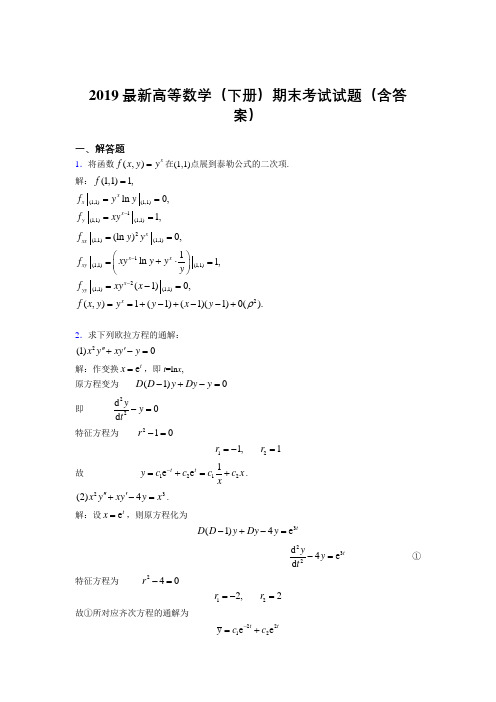 2019 最新高等数学（下册）期末考试试题（含答
案）
一、解答题
1．将函数 f(x, y) = y^x 在(1,1)点展到泰勒公式的二次项.
解：f(1,1) = 1,
f_x|_(1,1) = y^x ln y|_(1,1) = 0,
f_y|_(1,1) = xy^{x−1}|_(1,1) = 1,
f_xx|_(1,1) = (ln y)^2 y^x|_(1,1) = 0,
f_xy|_(1,1) = (xy^{x−1} ln y + y^x · 1/y)|_(1,1) = 1,
f_yy|_(1,1) = xy^{x−2}(x−1)|_(1,1) = 0,
f(x, y) = y^x = 1 + (y−1) + (x−1)(y−1) + 0(ρ^2).
2．求下列欧拉方程的通解：
(1) x^2 y″ + xy′ − y = 0
解：作变换 x = e^t，即 t=lnx,
原方程变为 D(D−1)y + Dy − y = 0
即 d^2y/dt^2 − y = 0
特征方程为 r^2 − 1 = 0
r_1 = −1, r_2 = 1
故 y = c_1 e^{−t} + c_2 e^t = c_1 1/x + c_2 x.
(2) x^2 y″ + xy′ − 4y = x^3.
解：设 x = e^t，则原方程化为
D(D−1)y + Dy − 4y = e^{3t}
d^2y/dt^2 − 4y = e^{3t} ①
特征方程为 r^2 − 4 = 0
r_1 = −2, r_2 = 2
故①所对应齐次方程的通解为
y̅ = c_1 e^{−2t} + c_2 e^{2t}